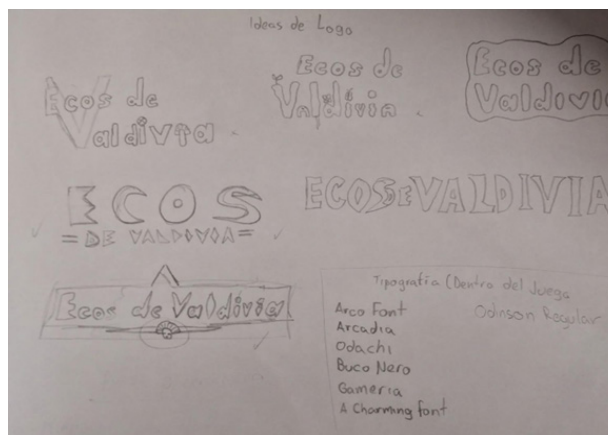 Ideas de Logo
Ecos de
Valdivia
Ecos de
Valdivia
Ecos de
Valdivia
ECOS
= DE VALDIVIA =
ECOS DE VALDIVIA
Ecos de Valdivia
Tipografía (Dentro del Juego
Arco Font
Odinson Regular
Arcadia
Odachi
Buco Nero
Gameria
A Charming font